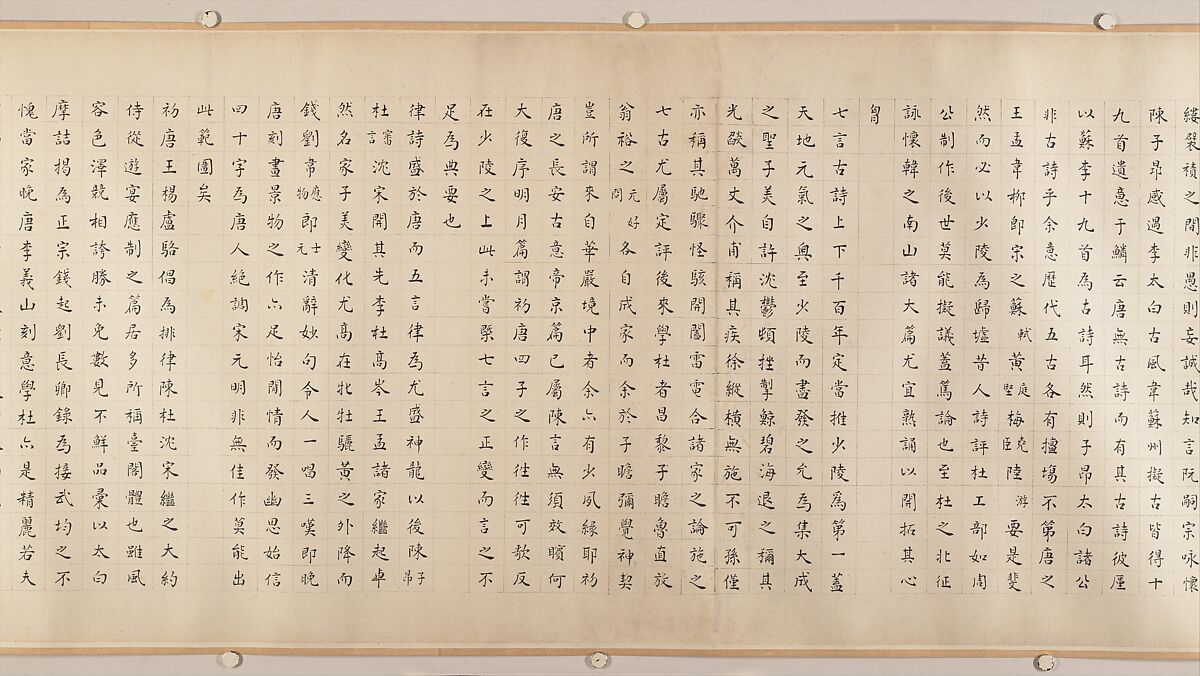 縷襞積之間非愚則妄誠哉知言阮嗣宗咏懷
陳子昂感遇李太白古風韋蘇州擬古皆得十
九首遺意于鱗云唐無古詩而有其古詩彼厪
以蘇李十九首為古詩耳然則子昂太白諸公
非古詩乎余意歷代五古各有擅場不第唐之
王孟韋柳即宋之蘇軾黃庭堅梅堯臣陸游要是斐
然而必以少陵為歸墟昔人詩評杜工部如周
公制作後世莫能擬議蓋篤論也至杜之北征
詠懷韓之南山諸大篇尤宜熟誦以開拓其心
胷
七言古詩上下千百年定當推少陵為第一蓋
天地元氣之奧至少陵而盡發之允為集大成
之聖子美自許沈鬱頓挫掣鯨碧海退之稱其
光燄萬丈介甫稱其疾徐縱橫無施不可孫僅
亦稱其馳驟怪駭開闔雷電合諸家之論施之
七古尤屬定評後來學杜者昌黎子瞻魯直放
翁裕之元好問各自成家而余於子瞻彌覺神契
豈所謂來自華嚴境中者余亦有少夙緣耶初
唐之長安古意帝京篇已屬陳言無須效矉何
大復序明月篇謂初唐四子之作往往可歌反
在少陵之上此未嘗槩七言之正變而言之不
足為典要也
律詩盛於唐而五言律為尤盛神龍以後陳子昂
杜審言沈宋開其先李杜高岑王孟諸家繼起卓
然名家子美變化尤高在牝牡驪黃之外降而
錢劉常應物即士元清辭妙句令人一唱三嘆即晚
唐刻畫景物之作亦足怡閒情而發幽思始信
四十字為唐人絕調宋元明非無佳作莫能出
此範圍矣
初唐王楊盧駱倡為排律陳杜沈宋繼之大約
侍從遊宴應制之篇居多所稱臺閣體也雖風
容色澤競相誇勝未免數見不鮮品彙以太白
摩詰揭為正宗錢起劉長卿錄為接武均之不
愧當家晚唐李義山刻意學杜亦是精麗若夫